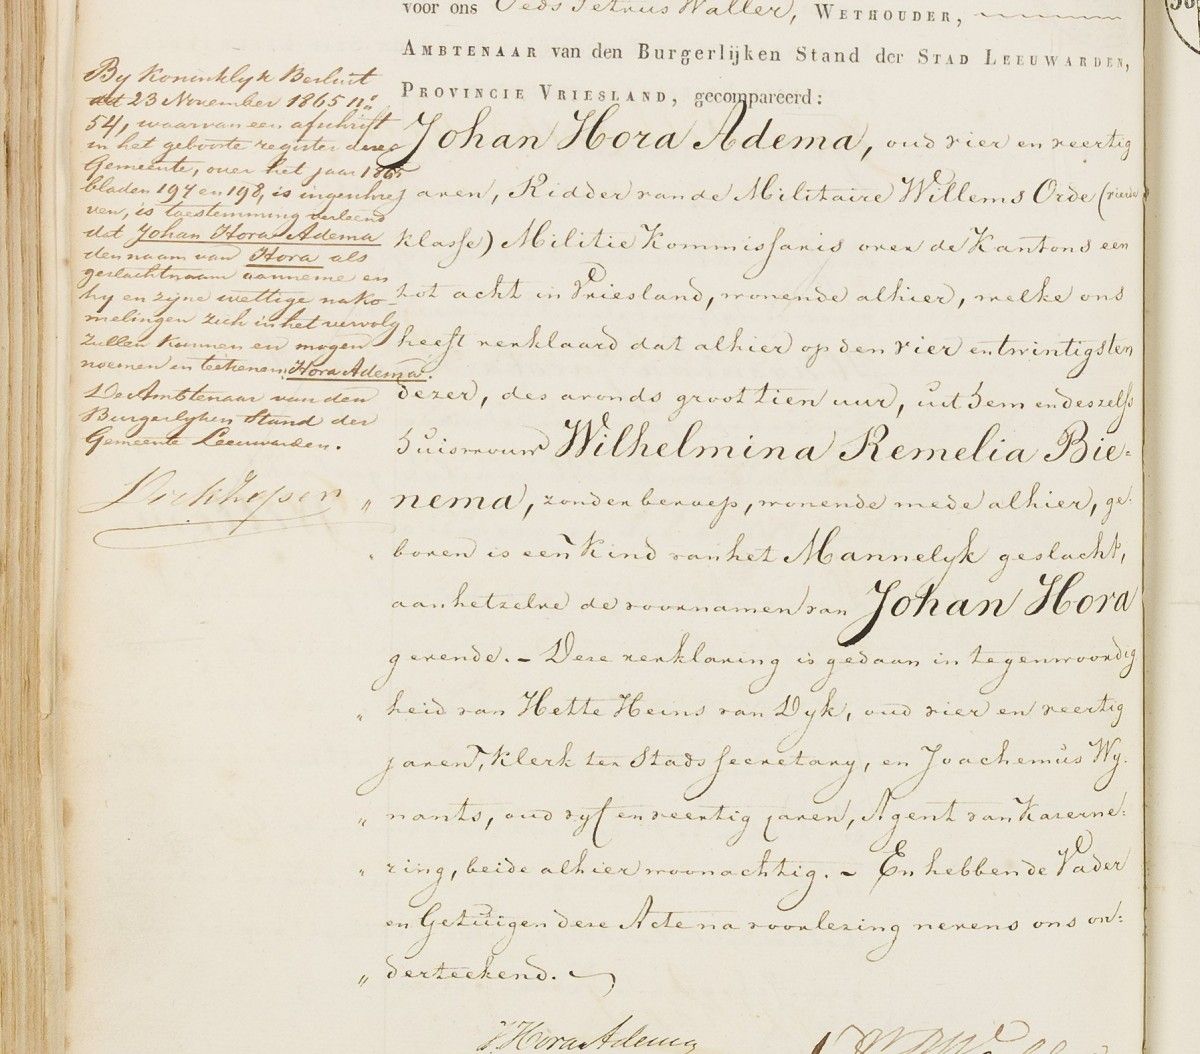 voor ons Oeds Petrus Waller, WETHOUDER,
AMBTENAAR van den Burgerlijken Stand der STAD LEEUWARDEN,
PROVINCIE VRIESLAND, gecompareerd:
Johan Hora Adema, oud vier en veertig
jaren, Ridder van de Militaire Willems Orde (vierde
klasse) Militie Kommissaris over de Kantons een
tot acht in Vriesland, wonende alhier, welke ons
heeft verklaard dat alhier op den vier en twintigsten
dezer, des avonds groot tien uur, uit hem en deszelfs
huisvrouw Wilhelmina Remelia Bie-
„ nema, zonder beroep, wonende mede alhier, ge-
„ boren is een kind van het Mannelyk geslacht,
aan hetzelve de voornamen van Johan Hora
gevende. - Deze verklaring is gedaan in tegenwoordig
„ heid van Hette Heins van Dyk, oud vier en veertig
jaren, Klerk ter Stads Secretary, en Joachemus Wy-
„ nants, oud vyf en veertig jaren, Agent van Kazerne-
„ ring, beide alhier woonachtig. - En hebben de Vader
en Getuigen deze Acte na voorlezing nevens ons on-
„ derteekend.
J Hora Adema
By Koninklyk Besluit
dd 23 November 1865 n°
54, waarvan een afschrift
in het geboorte register dezer
Gemeente, over het jaar 1865
bladen 197 en 198, is ingeschre-
ven, is toestemming verleend
dat Johan Hora Adema
den naam van Hora als
geslachtnaam aanneme en
hy en zijne wettige nako-
melingen zich in het vervolg
zullen kunnen en mogen
noemen en teekenen Hora Adema.
De Ambtenaar van den
Burgerlyken Stand der
Gemeente Leeuwarden.